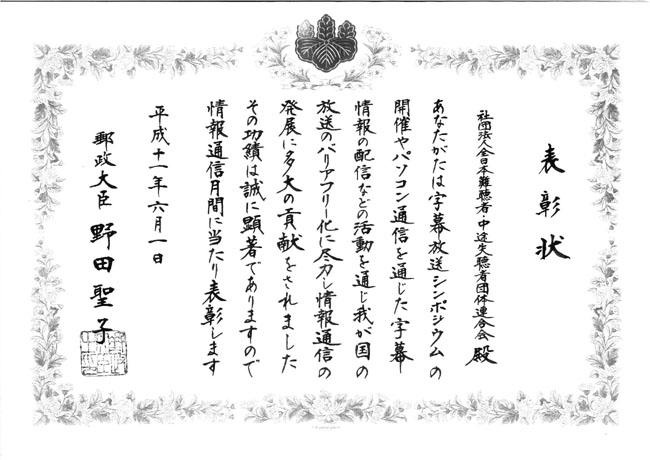 表彰状
社団法人全日本難聴者・中途失聴者団体連合会 殿
あなたがたは字幕放送シンポジウムの
開催やパソコン通信を通じた字幕
情報の配信などの活動を通じ我が国の
放送のバリアフリー化に尽力し情報通信の
発展に多大の貢献をされました
その功績は誠に顕著でありますので
情報通信月間に当たり表彰します
平成十一年六月一日
郵政大臣 野田聖子